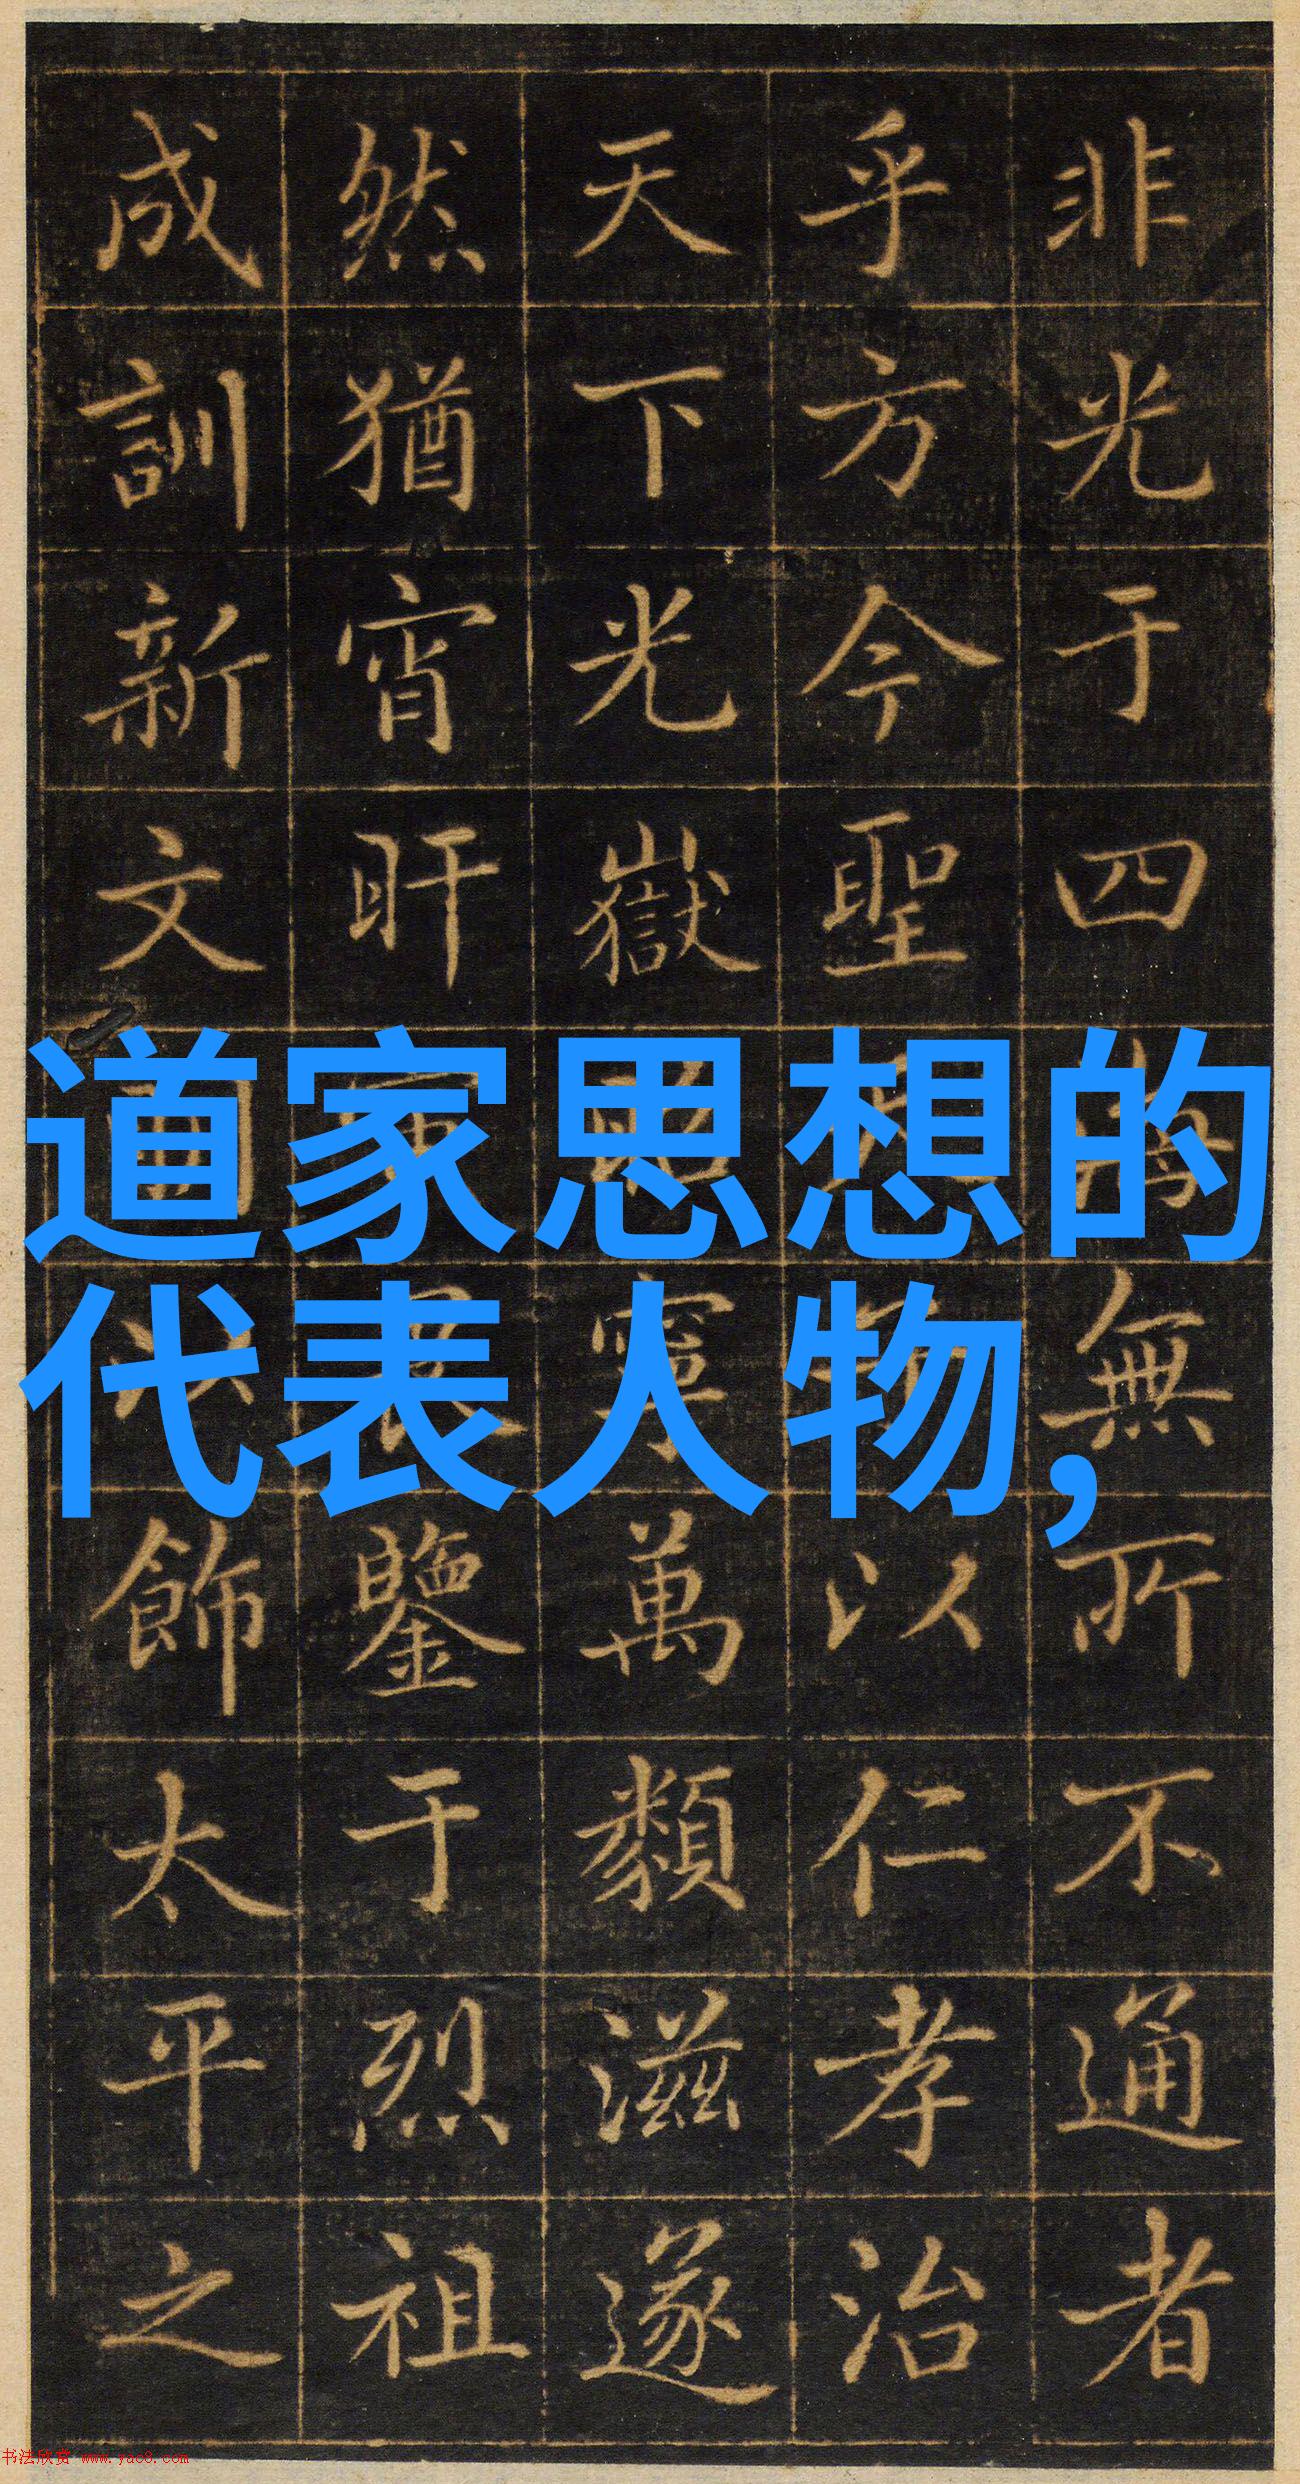 非光于四海無所不通者
乎方今聖以仁孝治
天下光嶽昭寧萬類滋遂
然猶宵旰鑒于烈祖
成訓新文以飾太平之
道家思想的
代表人物,
书法欣赏 www.yac8.com